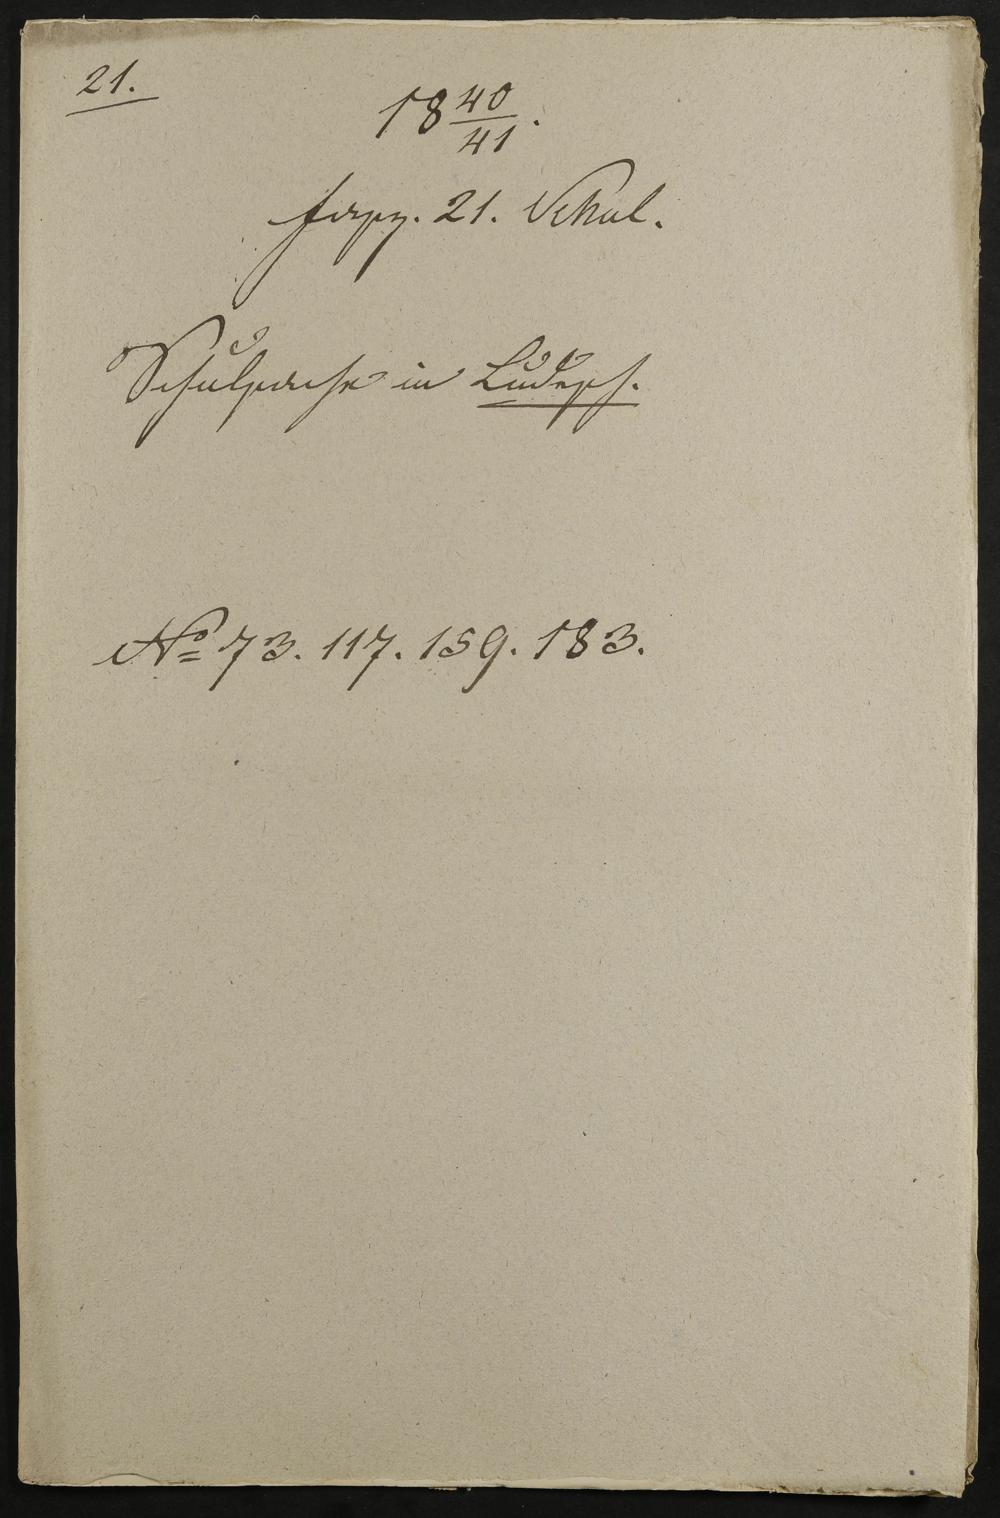 21.
18 40/41.
Fasz. 21. Schul.
Schulsache in Ludesch.
No 73. 117. 159. 183.